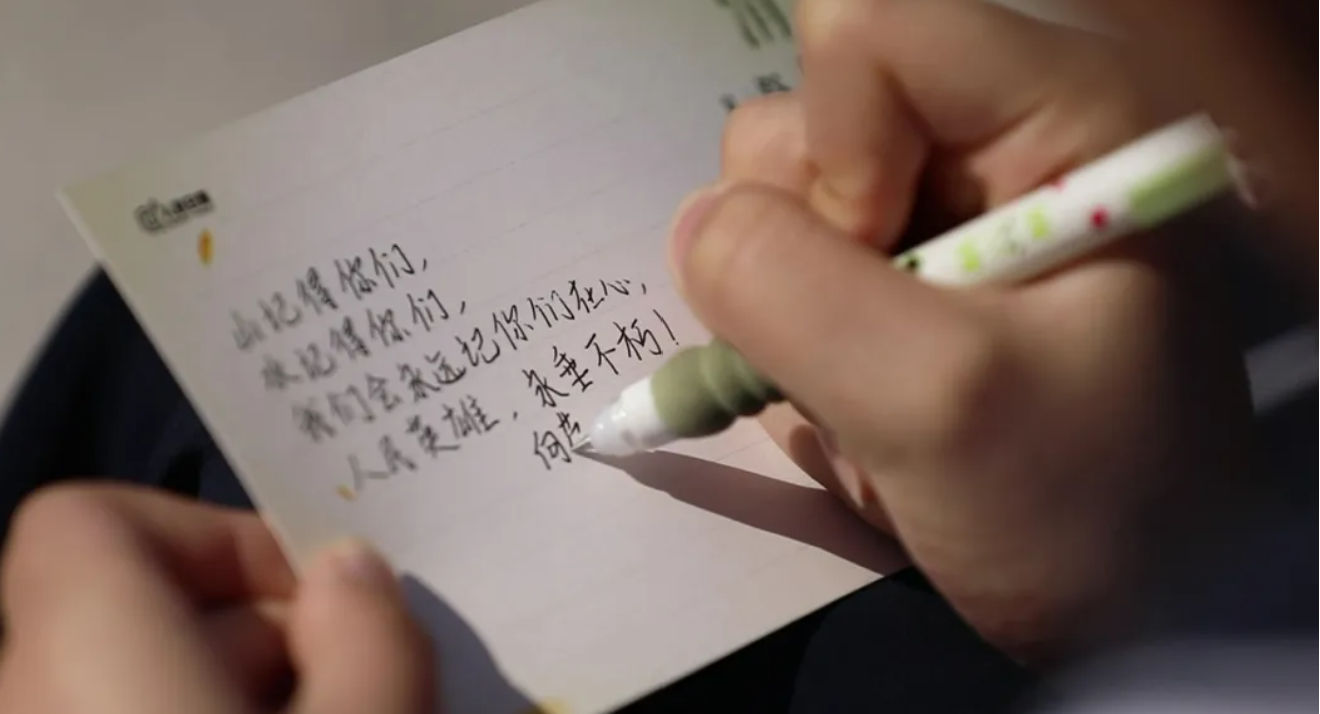 山记得你们，
水记得你们，
我们会永远记你们在心，
人民英雄，永垂不朽！
向